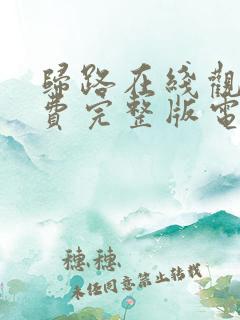 歸路在綫觀
費完整版電
穗穗
未经同意禁止转载